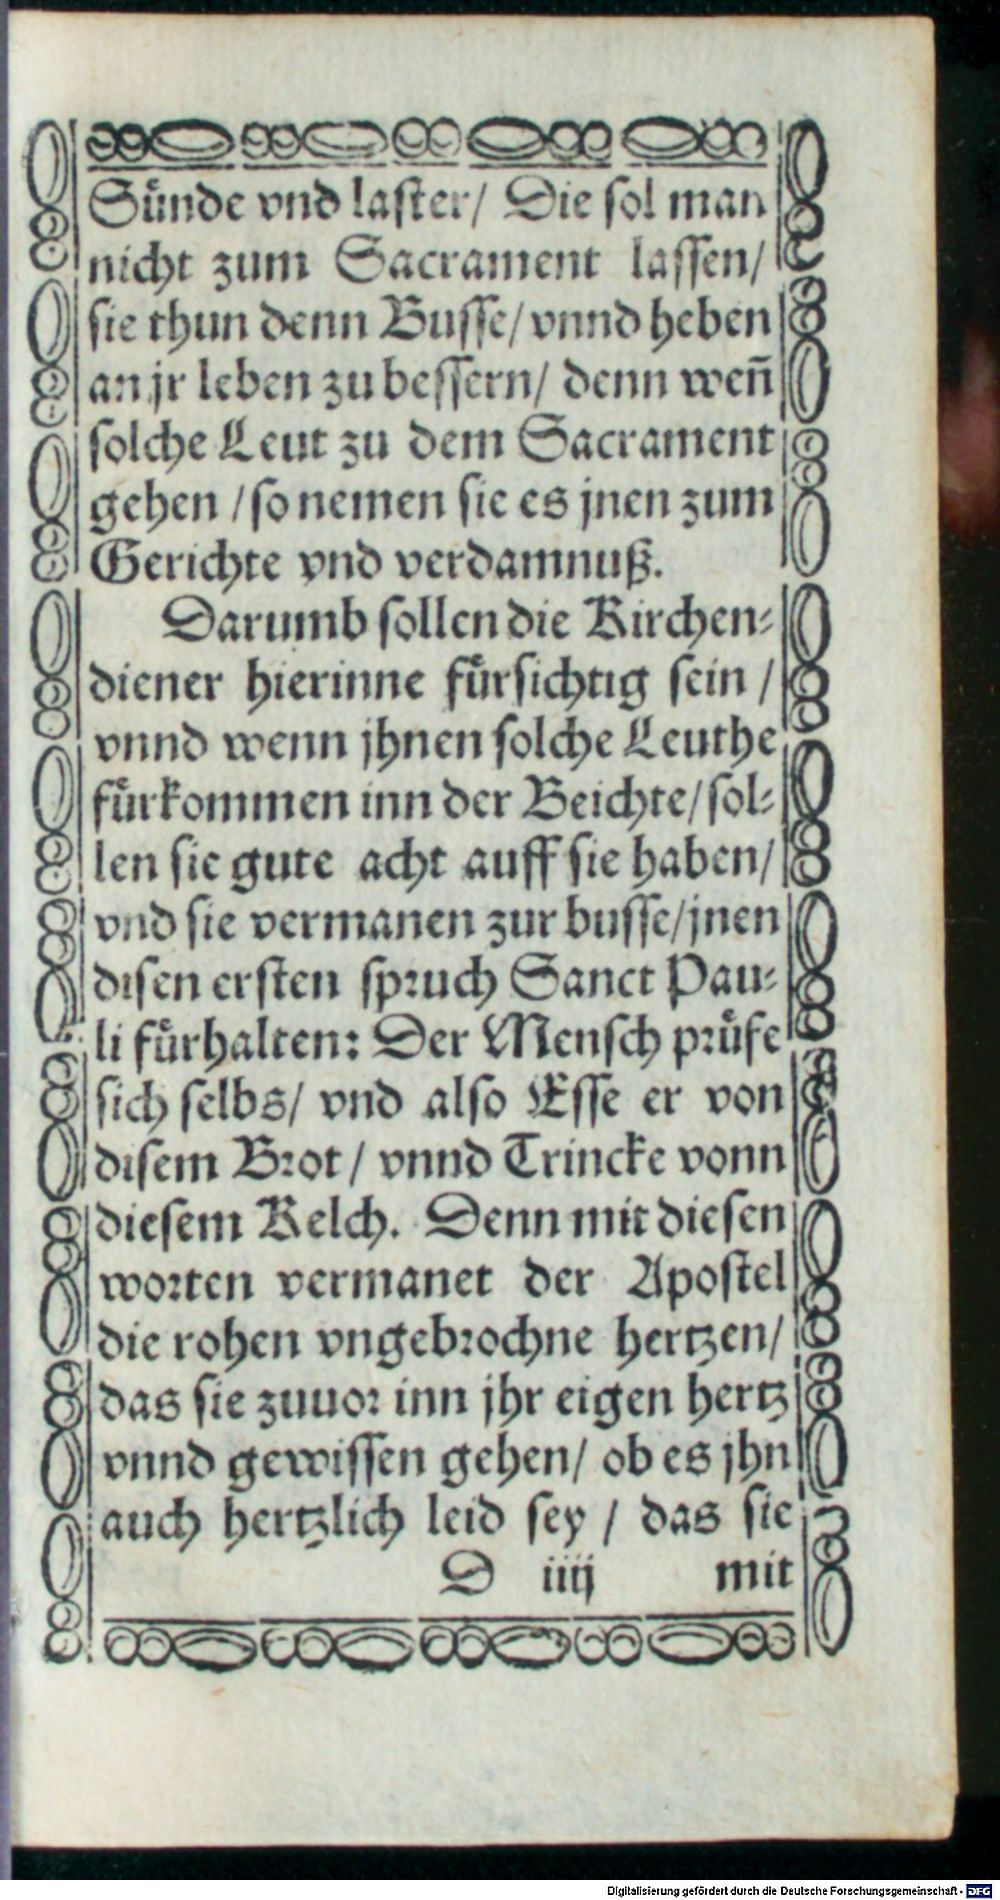 Sünde vnd laster/ Die sol man
nicht zum Sacrament lassen/
sie thun denn Busse/ vnnd heben
an jr leben zu bessern/ denn weñ
solche Leut zu dem Sacrament
gehen /so nemen sie es jnen zum
Gerichte vnd verdamnuß.
Darumb sollen die Kirchen-
diener hierinne fürsichtig sein /
vnnd wenn jhnen solche Leuthe
fürkommen inn der Beichte/ sol-
len sie gute acht auff sie haben/
vnd sie vermanen zur busse/ jnen
disen ersten spruch Sanct Pau-
li fürhalten: Der Mensch prüfe
sich selbs/ vnd also Esse er von
disem Brot / vnnd Trincke vonn
diesem Kelch. Denn mit diesen
worten vermanet der Apostel
die rohen vngebrochne hertzen/
das sie zuuor inn jhr eigen hertz
vnnd gewissen gehen/ ob es jhn
auch hertzlich leid sey / das sie
D iiij mit
Digitalisierung gefördert durch die Deutsche Forschungsgemeinschaft - DFG